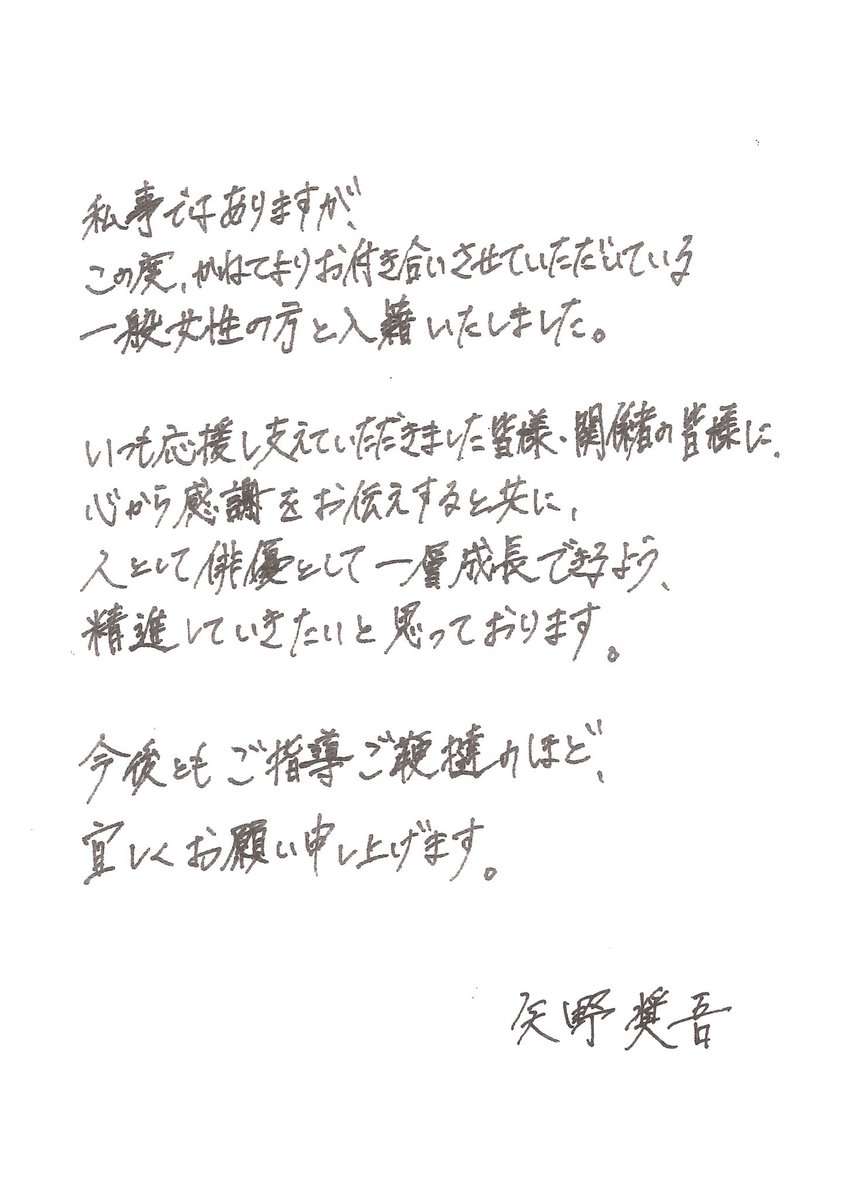 私事ではありますが、
この度、かねてよりお付き合いさせていただいている
一般女性の方と入籍いたしました。
いつも応援し支えていただきました皆様・関係者の皆様に、
心から感謝をお伝えすると共に、
人として俳優として一層成長できるよう、
精進していきたいと思っております。
今後ともご指導ご鞭撻のほど、
宜しくお願い申し上げます。
矢野奨吾